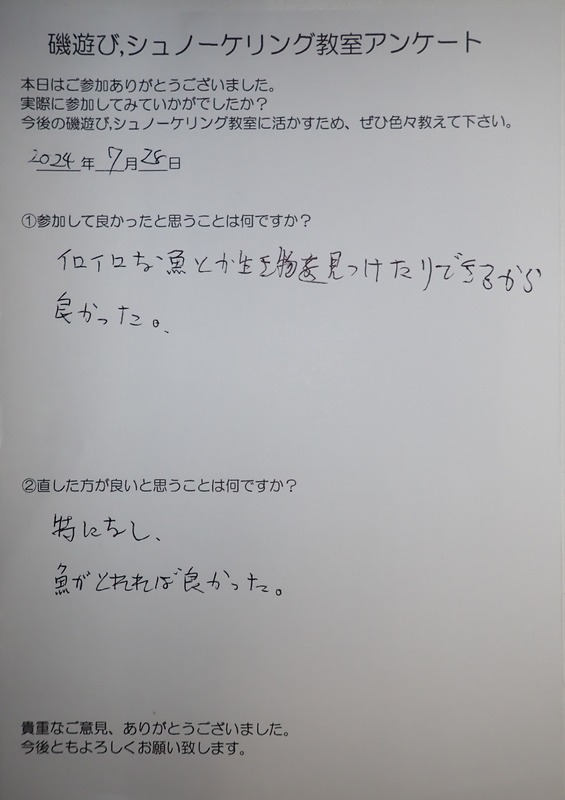 磯遊び,シュノーケリング教室アンケート
本日はご参加ありがとうございました。
実際に参加してみていかがでしたか？
今後の磯遊び,シュノーケリング教室に活かすため、ぜひ色々教えて下さい。
2024年 7月28日
①参加して良かったと思うことは何ですか？
イロイロな魚とか生き物を見つけたりできるから
良かった。
②直した方が良いと思うことは何ですか？
特になし、
魚がとれれば良かった。
貴重なご意見、ありがとうございました。
今後ともよろしくお願い致します。